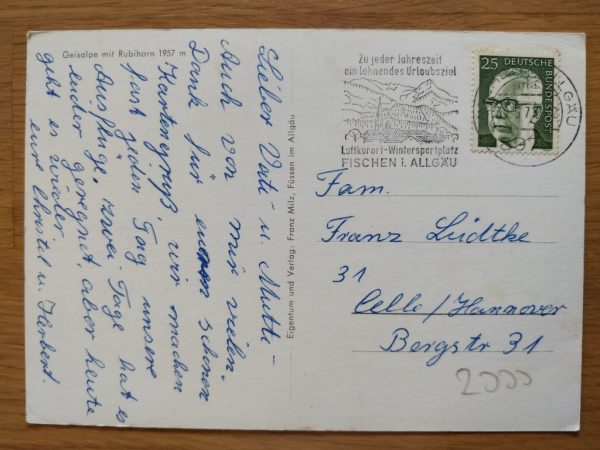 Geisalpe mit Rubihorn 1957 m
Lieber Vati u. Mutti –
Auch von mir vielen
Dank für euren schönen
Kartengruß, wir machen
fast jeden Tag unsere
Ausflüge, zwei Tage hat es
leider geregnet, aber heute
geht es wieder
eure Christel u. Herbert.
Eigentum und Verlag: Franz Milz, Füssen im Allgäu
Zu jeder Jahreszeit
ein lohnendes Urlaubsziel
Luftkurort-Wintersportplatz
FISCHEN i. ALLGÄU
25 DEUTSCHE
BUNDESPOST
ALLGÄU
Fam.
Franz Lüdtke
31
Celle/Hannover
Bergstr 31
2000